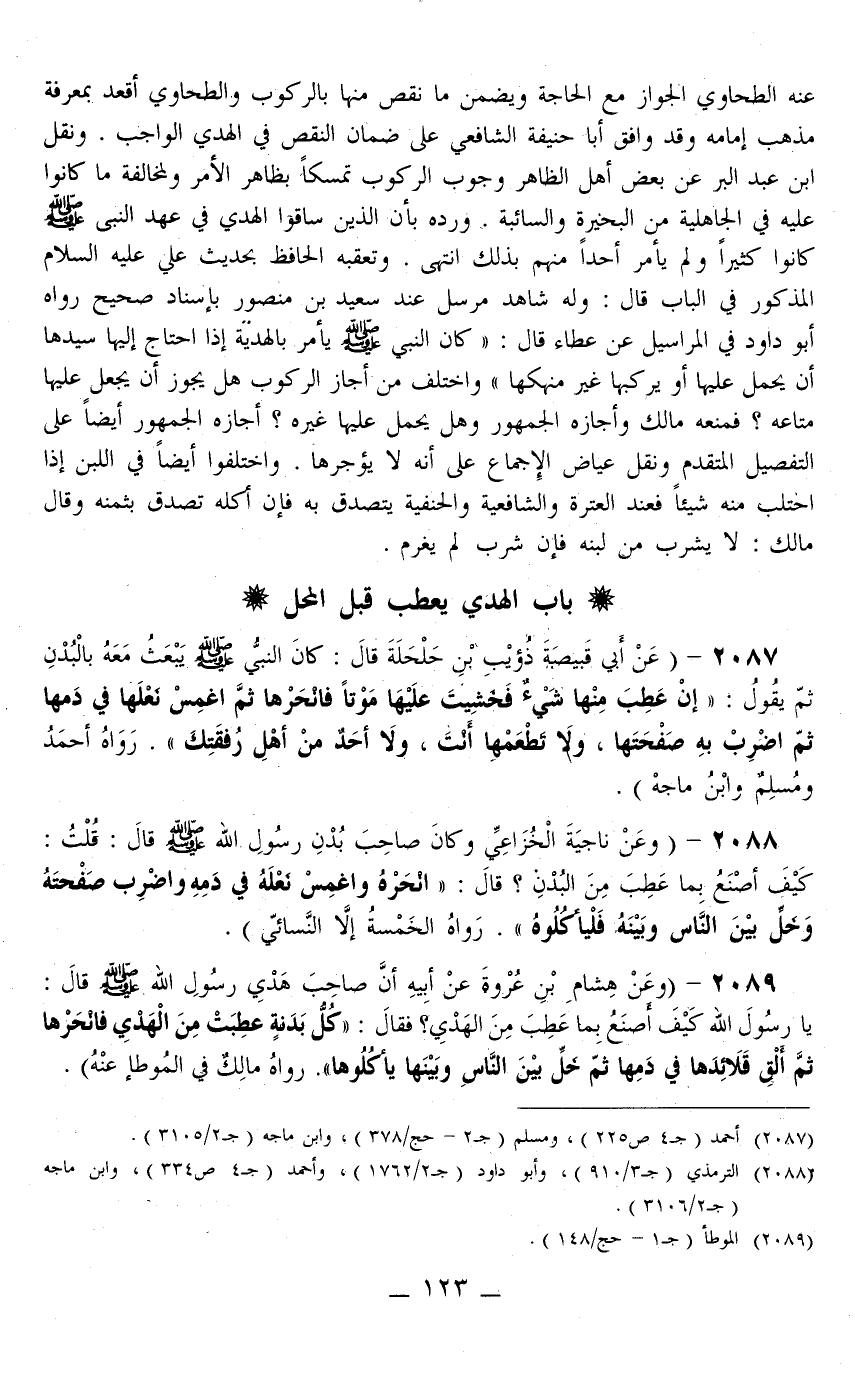 عنه الطحاوي الجواز مع الحاجة ويضمن ما نقص منها بالركوب والطحاوي أقعد بمعرفة
مذهب إمامه وقد وافق أبا حنيفة الشافعي على ضمان النقص في الهدي الواجب . ونقل
ابن عبد البر عن بعض أهل الظاهر وجوب الركوب تمسكاً بظاهر الأمر ولمخالفة ما كانوا
عليه في الجاهلية من البحيرة والسائبة . ورده بأن الذين ساقوا الهدي في عهد النبى ﷺ
كانوا كثيراً ولم يأمر أحداً منهم بذلك انتهى . وتعقبه الحافظ بحديث علي عليه السلام
المذكور في الباب قال : وله شاهد مرسل عند سعيد بن منصور بإسناد صحيح رواه
أبو داود في المراسيل عن عطاء قال : « كان النبي ﷺ يأمر بالهديّة إذا احتاج إليها سيدها
أن يحمل عليها أو يركبها غير منهكها » واختلف من أجاز الركوب هل يجوز أن يجعل عليها
متاعه ؟ فمنعه مالك وأجازه الجمهور وهل يحمل عليها غيره ؟ أجازه الجمهور أيضاً على
التفصيل المتقدم ونقل عياض الإجماع على أنه لا يؤجرها . واختلفوا أيضاً في اللبن إذا
احتلب منه شيئاً فعند العترة والشافعية والحنفية يتصدق به فإن أكله تصدق بثمنه وقال
مالك : لا يشرب من لبنه فإن شرب لم يغرم .
باب الهدي يعطب قبل المحل
٢٠٨٧ – ( عَنْ أبي قَبِيصَةَ ذُؤَيْبِ بْنِ حَلْحَلَةَ قالَ : كانَ النبيُّ ﷺ يَبْعَثُ مَعَهُ بالْبُدْنِ
ثمّ يقُولُ : « إنْ عَطِبَ مِنْها شَيْءٌ فَخَشِيتَ علَيْهَا مَوْتاً فانْحَرْها ثمَّ اغمِسْ نَعْلَها في دَمها
ثمّ اضْرِبْ بهِ صفْحَتَها ، ولَا تَطْعَمْها أَنْتَ ، ولَا أحَدٌ منْ أهْلِ رُفقَتِكَ » . رَوَاهُ أحمَدُ
ومُسلِمٌ وابْنُ ماجهْ ) .
٢٠٨٨ – ( وعَنْ ناجيَةَ الْخُزَاعِيِّ وكانَ صاحِبَ بُدْنِ رسُولِ الله ﷺ قالَ : قُلْتُ :
كَيْفَ أصْنَعُ بِما عَطِبَ مِنَ البُدْنِ ؟ قالَ : « انْحَرْهُ واغمِسْ نَعْلَهُ في دَمِهِ واضْرِب صفْحتَهُ
وَخَلِّ بيْنَ النَّاس وبَيْنَهُ فَلْيأكُلُوهُ » . رَواهُ الخَمْسةُ إلَّا النَّسائيّ ) .
٢٠٨٩ – (وعَنْ هِشامِ بْنِ عُرْوةَ عنْ أبيهِ أنَّ صاحِبَ هَدْي رسُولِ الله ﷺ قالَ :
يا رسُولَ الله كَيْفَ أَصنَعُ بِما عَطِبَ مِنَ الهَدْيِ؟ فقالَ : «كُلُّ بَدَنةٍ عطِبَتْ مِنَ الْهَدْيِ فانْحَرْها
ثمَّ أَلْقِ قَلَائِدَها في دَمِها ثمّ خَلِّ بيْنَ النَّاسِ وبَيْنَها يأكُلُوها». رواهُ مالِكٌ في المُوطإ عنْهُ) .
(٢٠٨٧) أحمد ( جـ٤ ص٢٢٥ ) ، ومسلم ( جـ٢ – حج/٣٧٨ ) ، وابن ماجه ( جـ٣١٠٥/٢ ) .
(٢٠٨٨) الترمذي ( جـ٩١٠/٣ ) ، وأبو داود ( جـ١٧٦٢/٢ ) ، وأحمد ( جـ٤ ص٣٣٤ ) ، وابن ماجه
( جـ٣١٠٦/٢ ) .
(٢٠٨٩) الموطأ ( جـ١ – حج/١٤٨ ) .
– ١٢٣ –